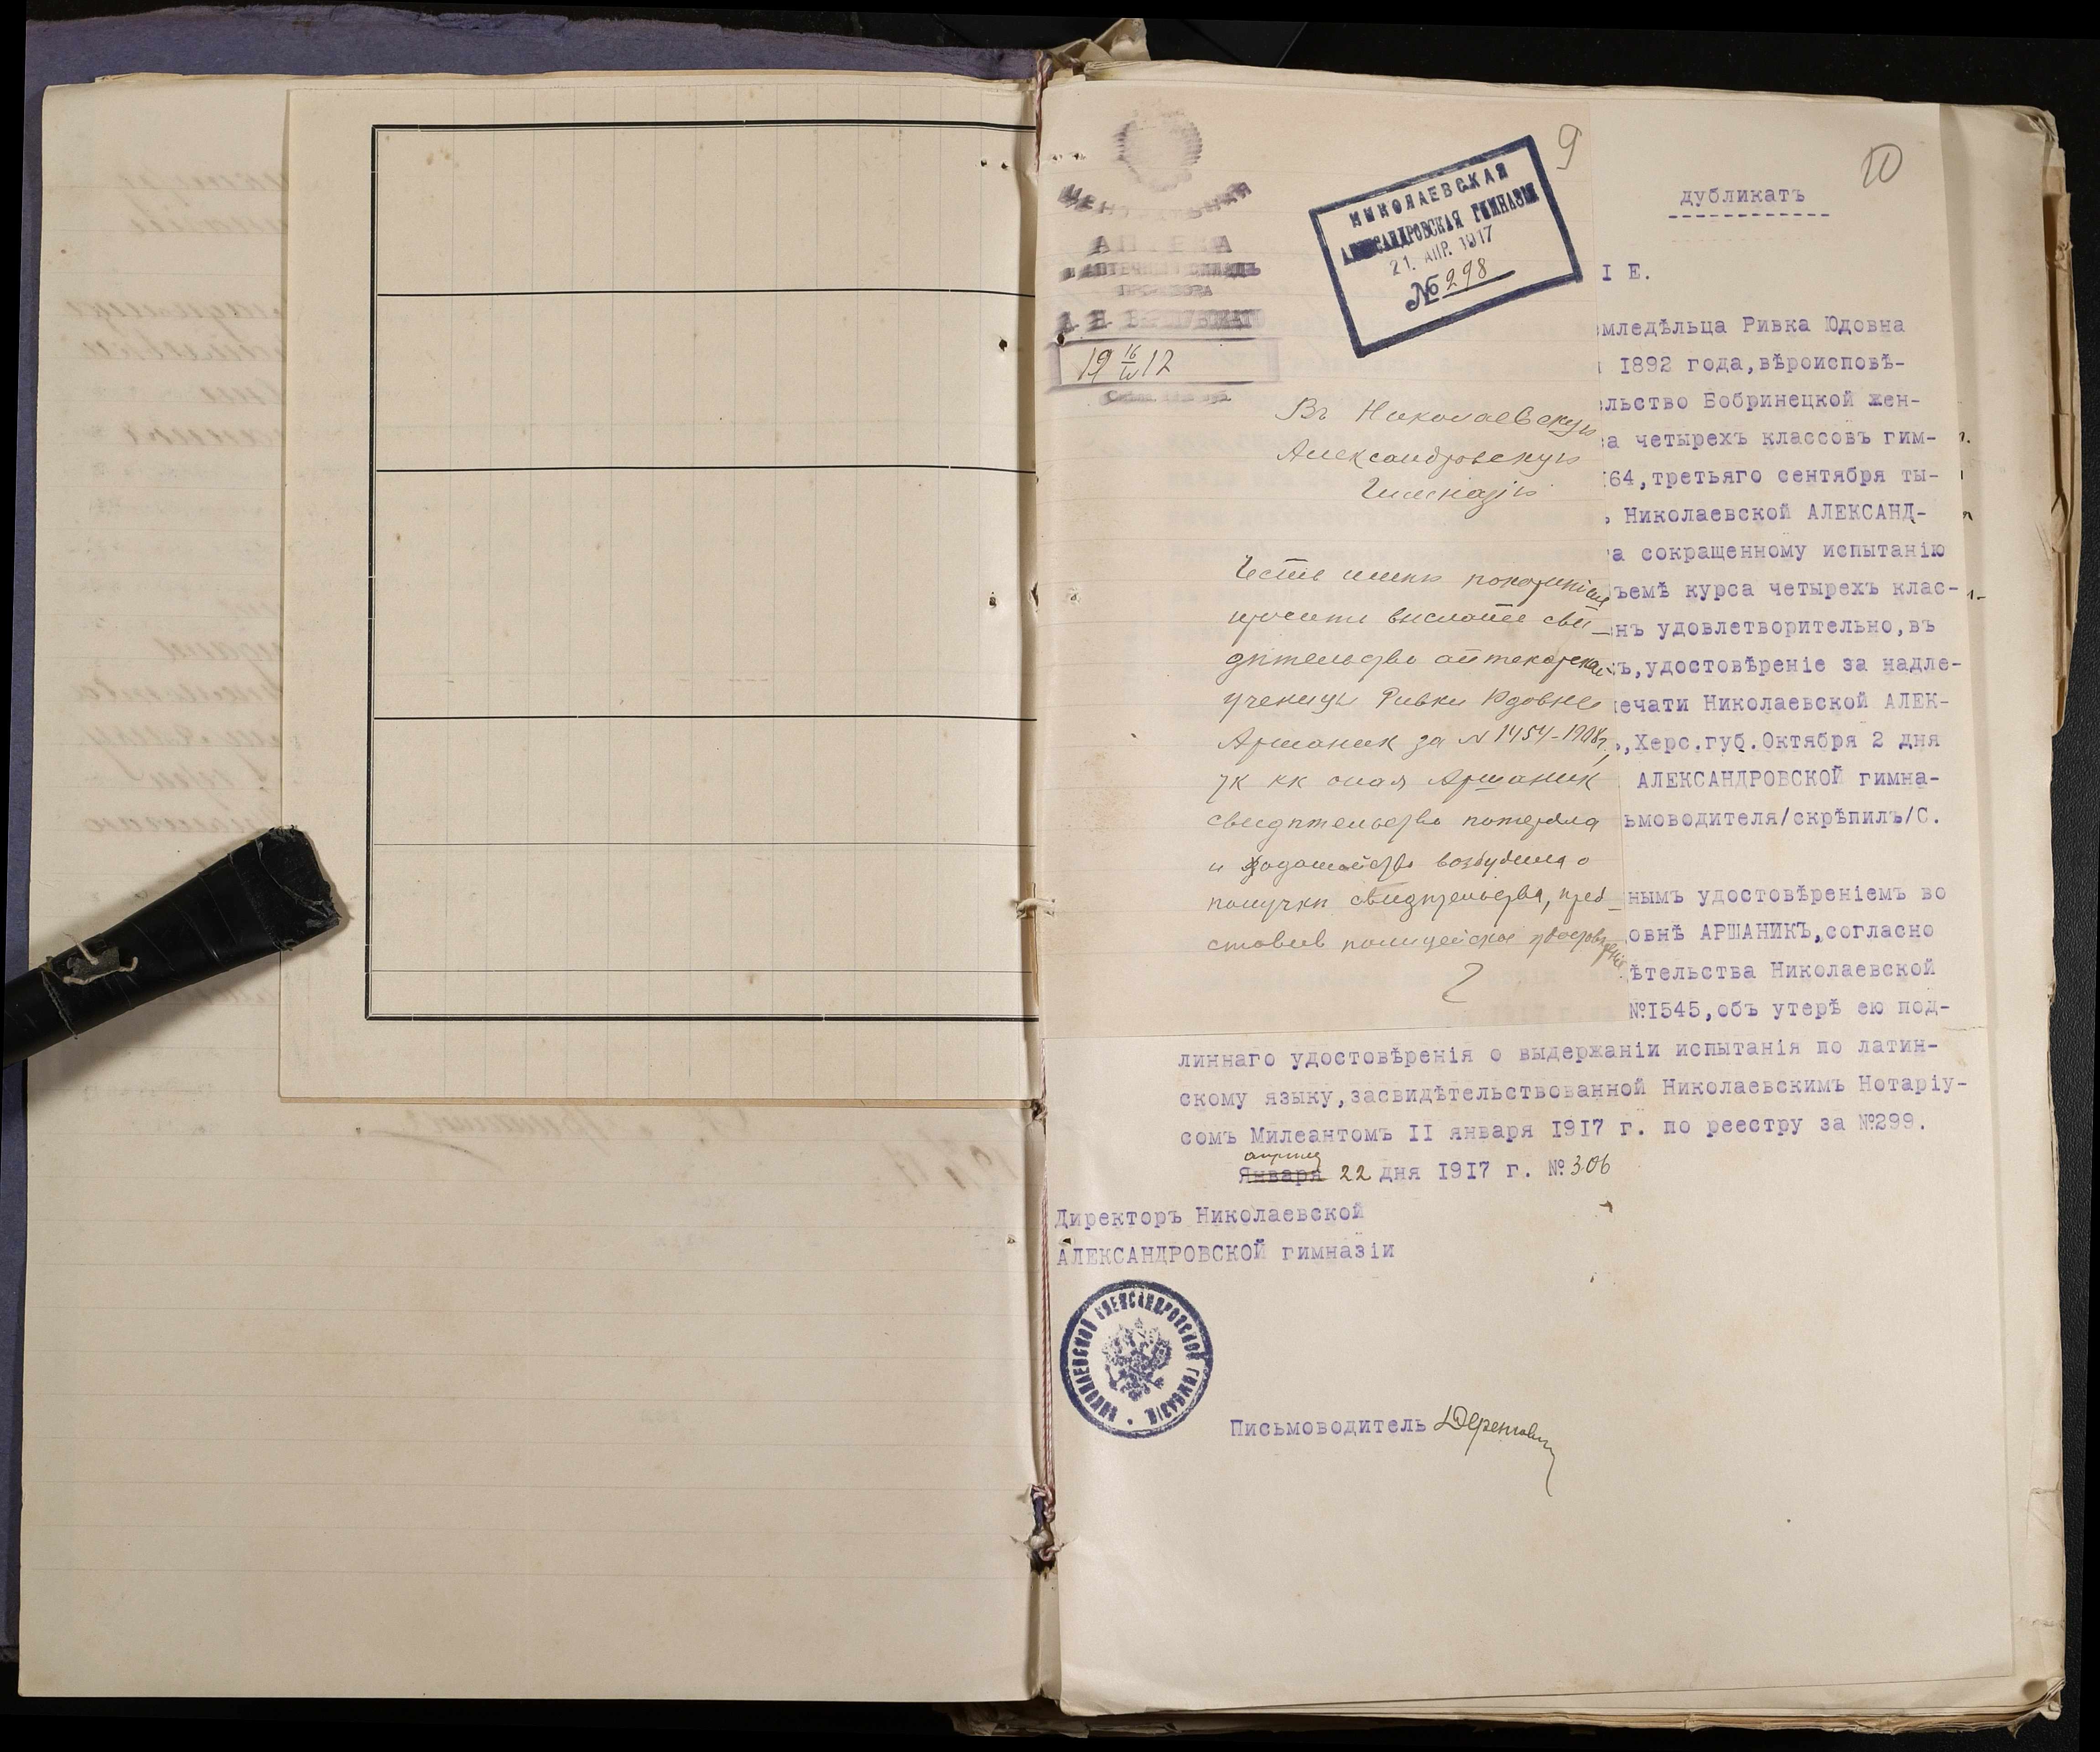 9
10
ЦЕНТРАЛЬНАЯ
АПТЕКА
и АПТЕЧНЫЙ СКЛАДЪ
ПРОВИЗОРА
НИКОЛАЕВСКАЯ
АЛЕКСАНДРОВСКАЯ ГИМНАЗІЯ
21. АПР. 1917
№ 298
Въ Николаевскую
Александровскую
Гимназію
Честь имѣю покорнѣйше
просить выслать сви-
дѣтельство аптекарской
ученицы Ривки Юдовны
Аршаник за N 1454-1908г,
оная Аршаник
свидѣтельство потеряла
и ходатайство возбудила о
получки свидѣтельства, пред-
ставив полицейское удостовѣреніе
дубликатъ
І Е.
млѣдѣльца Ривка Юдовна
1892 года, вѣроисповѣ-
льство Бобринецкой жен-
а четырехъ классовъ гим-
64, третьяго сентября ты-
, Николаевской АЛЕКСАНД-
а сокращенному испытанію
ъемѣ курса четырехъ клас-
нъ удовлетворительно, въ
ъ, удостовѣреніе за надле-
печати Николаевской АЛЕК-
, Херс.губ. Октября 2 дня
АЛЕКСАНДРОВСКОЙ гимна-
ьмоводителя/скрѣпилъ/С.
нымъ удостовѣреніемъ во
овнѣ АРШАНИКЪ, согласно
ѣтельства Николаевской
№I545, объ утерѣ ею под-
линнаго удостовѣренія о выдержаніи испытанія по латин-
скому языку, засвидѣтельствованной Николаевскимъ Нотаріу-
сомъ Милеантомъ II января I9I7 г. по реестру за №299.
апрѣля
Января 22 дня I9I7 г. № 306
Директоръ Николаевской
АЛЕКСАНДРОВСКОЙ гимназіи
НИКОЛАЕВСКОЙ АЛЕКСАНДРОВСКОЙ ГИМНАЗІИ
Письмоводитель